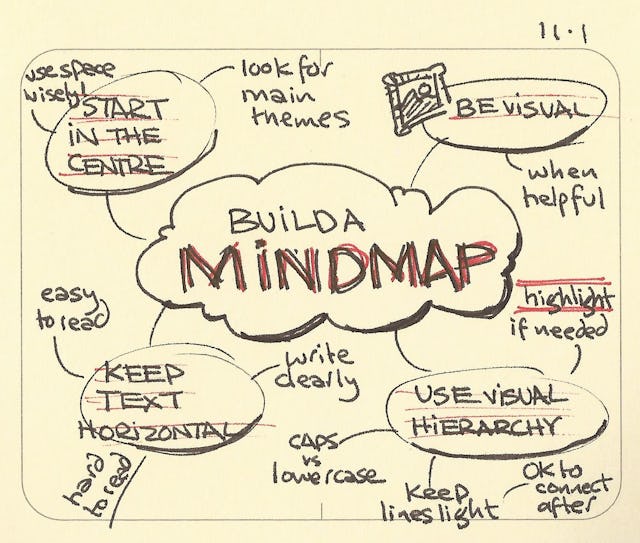 11.1
use space
wisely!
START
IN THE
CENTRE
look for
main
themes
BE VISUAL
when
helpful
BUILD A
MINDMAP
easy
to read
KEEP
TEXT
HORIZONTAL
write
clearly
hard
to read
highlight
if needed
USE VISUAL
HIERARCHY
CAPS
vs
lowercase
Keep
lines light
OK to
connect
after